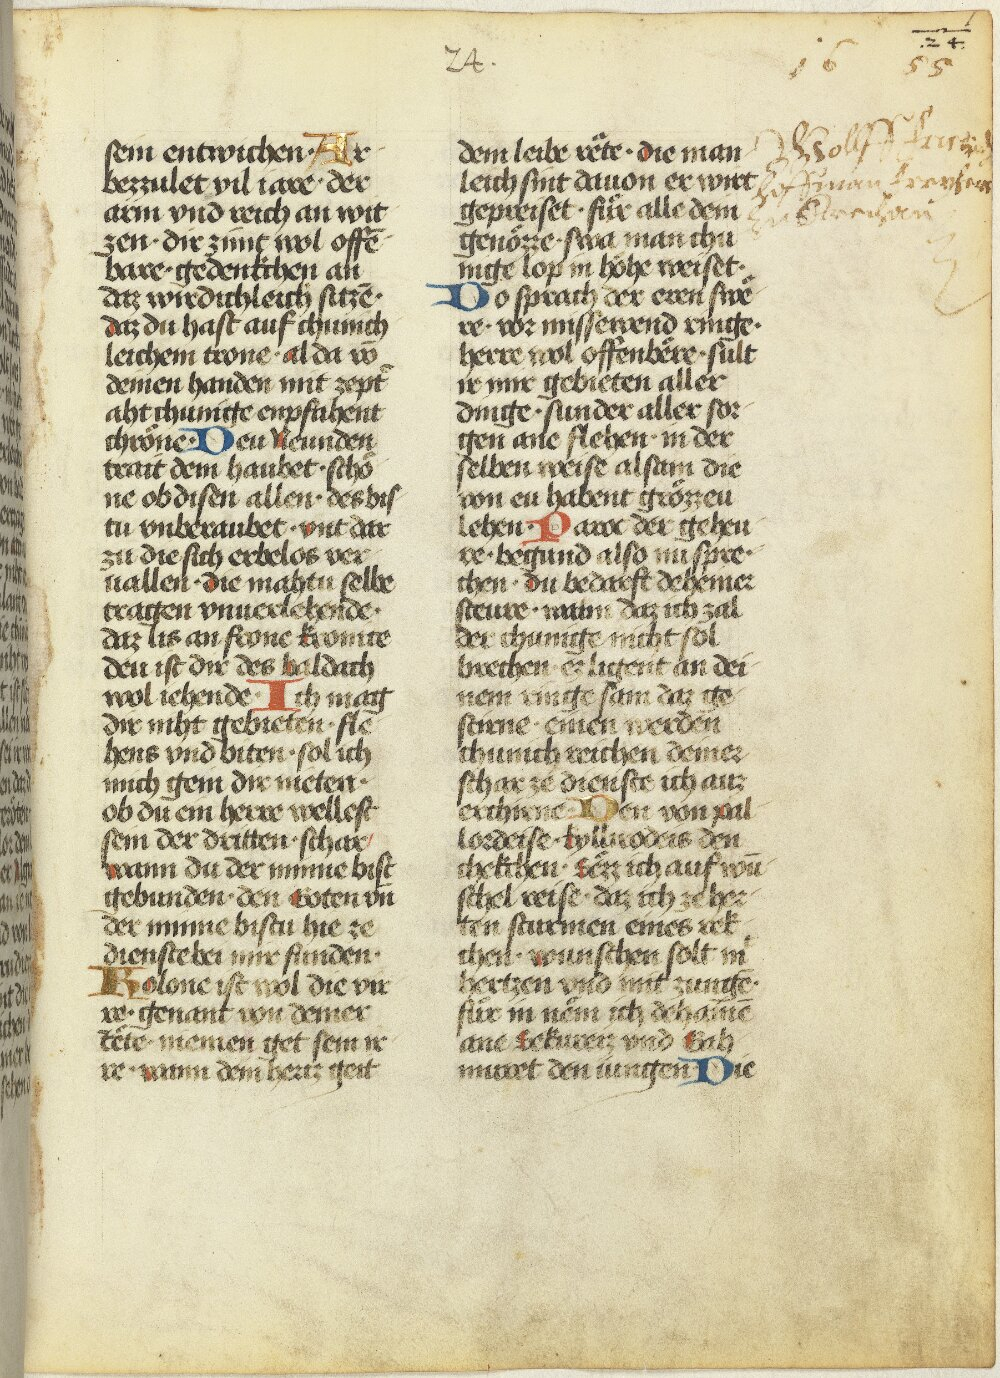 24.
24.
16 55
sein entwichen · Ar
bezzulet vil iare · der
arm vnd reich an wit
zen · dir zimt wol offē
bare · gedenkchen an
daz wirdichleich sitzē ·
daz du hast auf chunich
leichem trone · al da vō
deinen handen mit zept
aht chunige enpfahent
chröne · Deu Neunden
trait dem haubet · schö
ne ob disen allen · des bis
tu vnberaubet · vnt dar
zu die sich erbelos ver
uallen · die mahtu selbe
tragen vnuerlehende ·
daz lis an frone kronire
den ist dir des baldach
wol iehende · Ich mag
dir niht gebieten · fle
hens vnd biten · sol ich
mich gein dir nieten ·
ob du ein herre wellest
sein der dritten · schar
wann du der minne bist
gebunden · den boten vn̄
der minne bistu hie ze
dienste bei mir funden ·
Kolone ist wol die vir
re · genant von deiner
tête · niemen get sein ir
re · wann dem hertz geit
dem leibe rête · die man
leich sint dauon er wirt
gepreiset · für alle dem
genözze · swa man chu
nige lop in höhe weiset ·
Do sprach der eren swê
re · vor missewend ringe ·
herre wol offenbêre · sült
ir mir gebieten aller
dinge · sunder aller sor
gen ane flehen · in der
selben weise alsam die
von eu habent grözzeu
lehen · Paroc der geheu
re · begund also im spre
chen · du bedarft deheiner
steure · wann daz ich zal
der chunige nicht sol
brechen · er ligent an dei
nem ringe sam daz ge
stirne · einen werden
chunich reichen deiner
schar ze dienste ich auz
erchirne · Den von pal
lordeise · kyllirodeis den
chekchen · setz ich auf wū
schel reise · daz ich ze her
ten sturmen eines rek
chen · wunschen solt in
hertzen vnd mit zungē ·
für in nêm ich dehainē
ane sekureiz vnd bah
muret den iungen Die